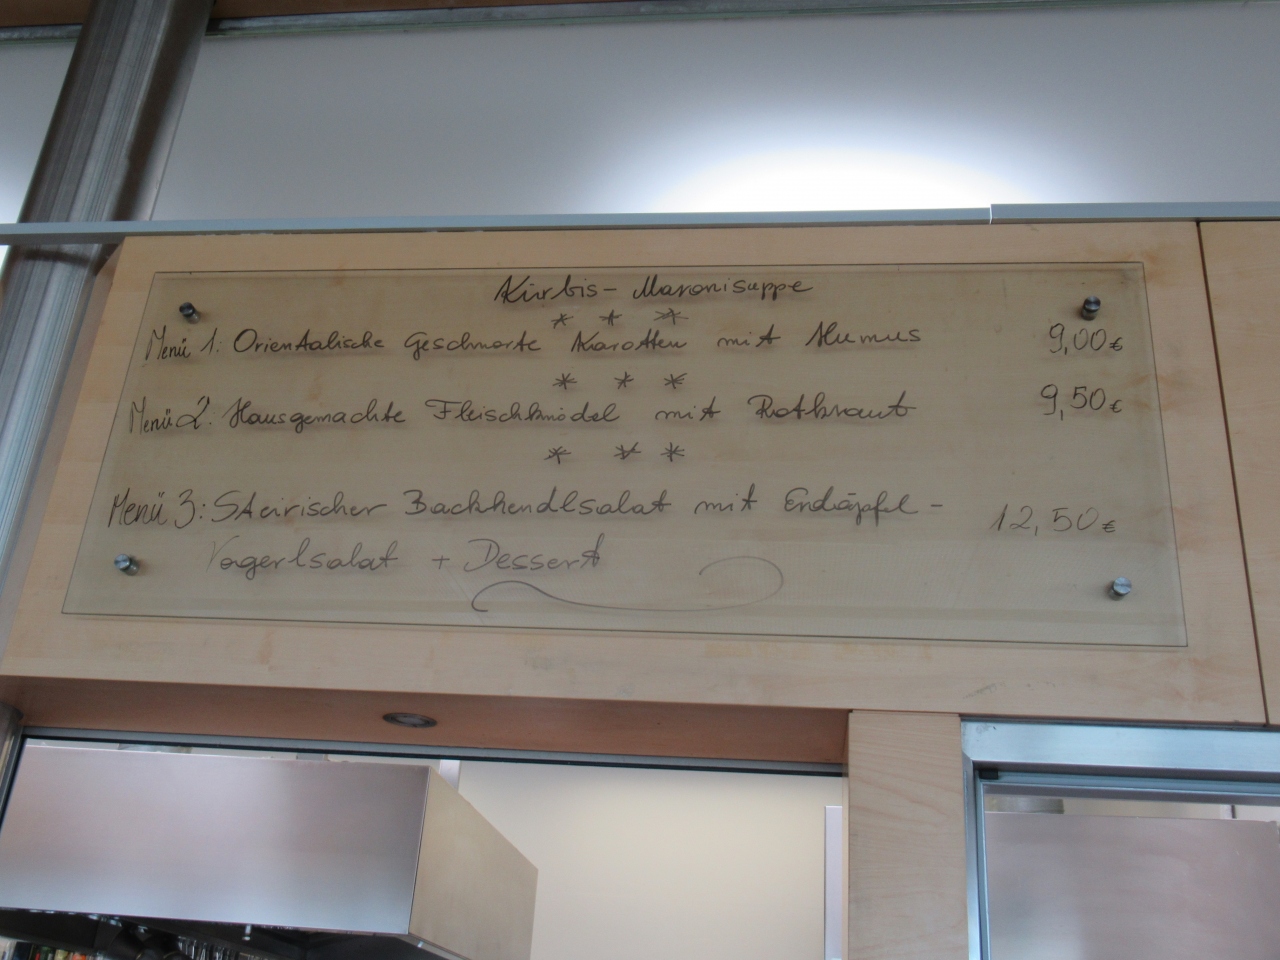 Kürbis - Maronisuppe
* * *
Menü 1: Orientalische Geschmorte Karotten mit Humus 9,00€
* * *
Menü 2: Hausgemachte Fleischknödel mit Rotkraut 9,50€
* * *
Menü 3: Steirischer Backhendlsalat mit Erdäpfel - 12,50€
Vogerlsalat + Dessert